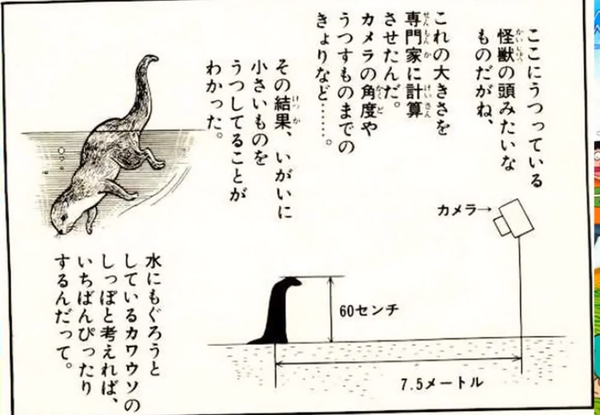 ここにうつっている
怪獣の頭みたいな
ものだがね、
これの大きさを
専門家に計算
させたんだ。
カメラの角度や
うつすものまでの
きょりなど……。
その結果、いがいに
小さいものを
うつしてることが
わかった。
カメラ→
60センチ
7.5メートル
水にもぐろうと
しているカワウソの
しっぽと考えれば、
いちばんぴったり
するんだって。